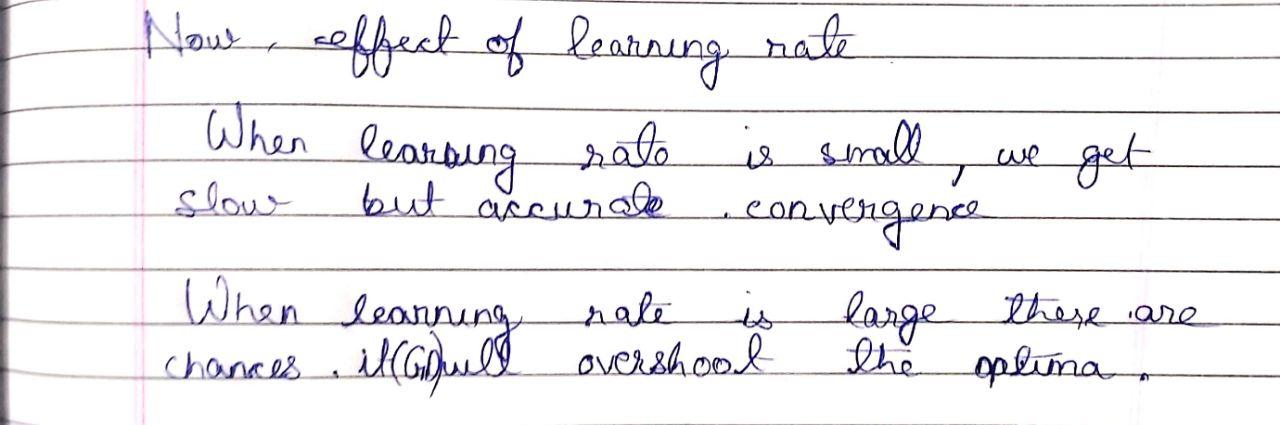 Now, effect of learning rate
When learning rate is small, we get
slow but accurate convergence
When learning rate is large there are
chances it will overshoot the optima.